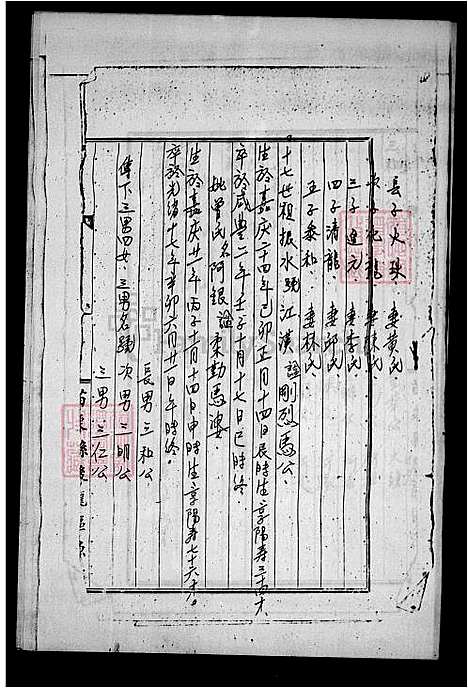 長子火琭、妻黄氏
次子化龍、妻陳氏
三子進方、妻李氏
四子清龍、妻邱氏
五子泰和、妻林氏
十七世祖振水號江漢諡剛烈馬公
生於嘉庆二十四年己卯正月十四日辰時生享陽寿三十四才
卒於咸豊二年壬子十月十七日巳時終。
妣曾氏名阿銀諡柔勤馬婆
生於嘉庆廿一年丙子十一月十四日申時生享陽寿七十六才。
卒於光緒十七年辛卯六月廿一日午時終。
長男三和公
傳下三男四女、三男名號次男三明公
三男三仁公